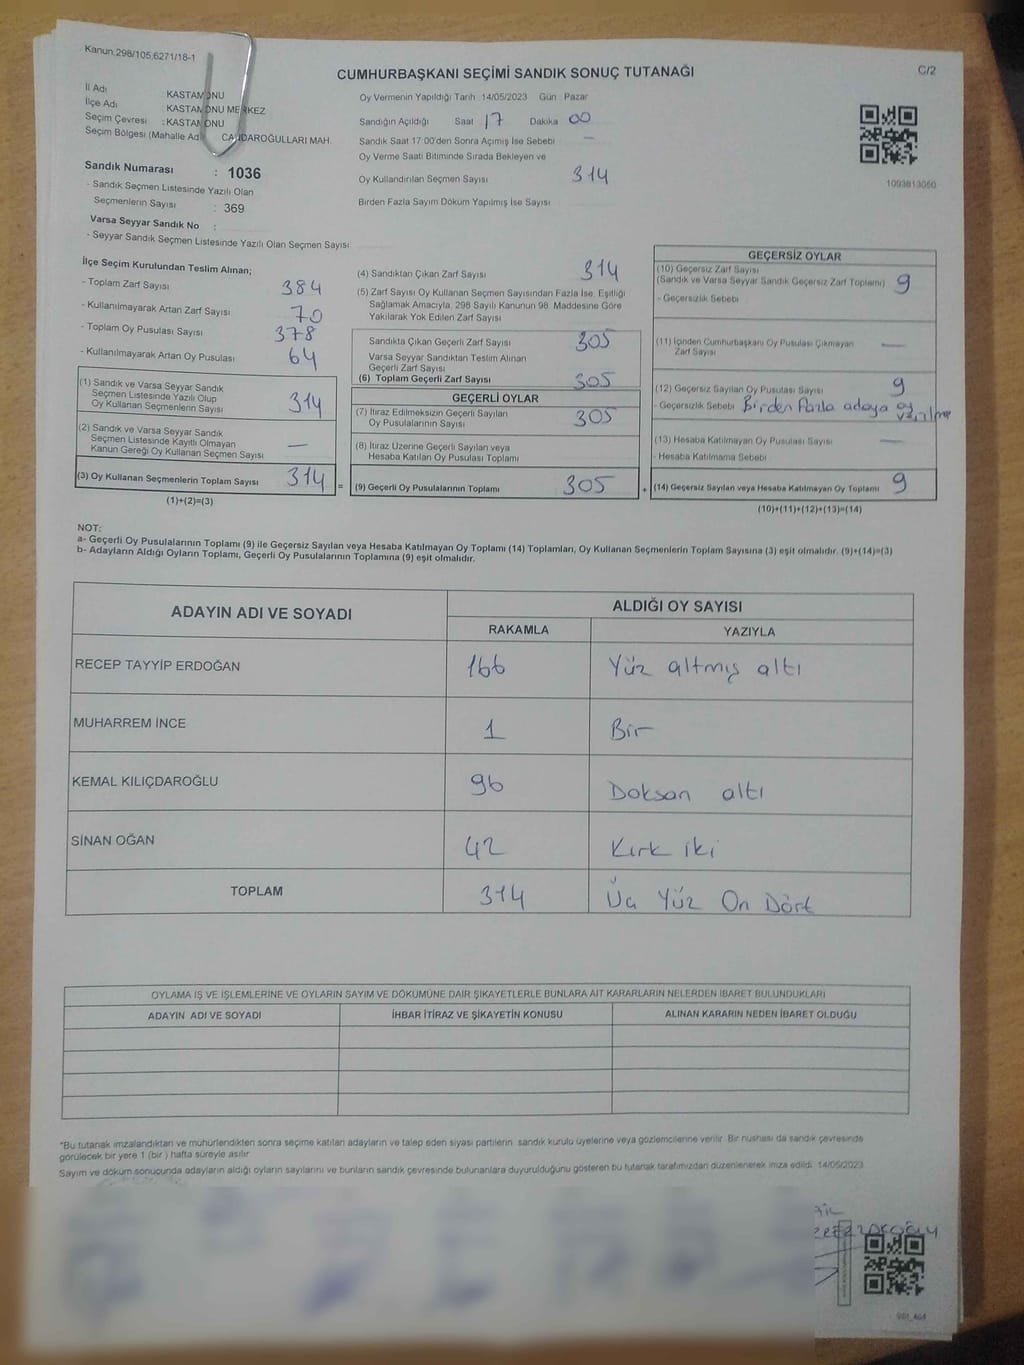 Kanun.298/105,6271/18-1
C/2
CUMHURBAŞKANI SEÇİMİ SANDIK SONUÇ TUTANAĞI
İl Adı : KASTAMONU
İlçe Adı : KASTAMONU MERKEZ
Seçim Çevresi : KASTAMONU
Seçim Bölgesi (Mahalle Ad CANDAROĞULLARI MAH.
Sandık Numarası : 1036
- Sandık Seçmen Listesinde Yazılı Olan
Seçmenlerin Sayısı : 369
Varsa Seyyar Sandık No :
- Seyyar Sandık Seçmen Listesinde Yazılı Olan Seçmen Sayısı
Oy Vermenin Yapıldığı Tarih 14/05/2023 Gün : Pazar
Sandığın Açıldığı Saat 17 Dakika 00
Sandık Saat 17:00'den Sonra Açımış İse Sebebi —
Oy Verme Saati Bitiminde Sırada Bekleyen ve
Oy Kullandırılan Seçmen Sayısı 314
Birden Fazla Sayım Döküm Yapılmış İse Sayısı
1093813060
İlçe Seçim Kurulundan Teslim Alınan;
- Toplam Zarf Sayısı 384
- Kullanılmayarak Artan Zarf Sayısı 70
- Toplam Oy Pusulası Sayısı 378
- Kullanılmayarak Artan Oy Pusulası 64
(1) Sandık ve Varsa Seyyar Sandık
Seçmen Listesinde Yazılı Olup
Oy Kullanan Seçmenlerin Sayısı 314
(2) Sandık ve Varsa Seyyar Sandık
Seçmen Listesinde Kayıtlı Olmayan
Kanun Gereği Oy Kullanan Seçmen Sayısı —
(3) Oy Kullanan Seçmenlerin Toplam Sayısı 314 =
(1)+(2)=(3)
(4) Sandıktan Çıkan Zarf Sayısı 314
(5) Zarf Sayısı Oy Kullanan Seçmen Sayısından Fazla İse, Eşitliği
Sağlamak Amacıyla, 298 Sayılı Kanunun 98. Maddesine Göre
Yakılarak Yok Edilen Zarf Sayısı
Sandıkta Çıkan Geçerli Zarf Sayısı 305
Varsa Seyyar Sandıktan Teslim Alınan
Geçerli Zarf Sayısı
(6) Toplam Geçerli Zarf Sayısı 305
GEÇERLİ OYLAR
(7) İtiraz Edilmeksizin Geçerli Sayılan
Oy Pusulalarının Sayısı 305
(8) İtiraz Üzerine Geçerli Sayılan veya
Hesaba Katılan Oy Pusulası Toplamı
(9) Geçerli Oy Pusulalarının Toplamı 305 +
GEÇERSİZ OYLAR
(10) Geçersiz Zarf Sayısı
(Sandık ve Varsa Seyyar Sandık Geçersiz Zarf Toplamı) 9
- Geçersizlik Sebebi
(11) İçinden Cumhurbaşkanı Oy Pusulası Çıkmayan
Zarf Sayısı —
(12) Geçersiz Sayılan Oy Pusulası Sayısı 9
- Geçersizlik Sebebi Birden Fazla adaya oy
(13) Hesaba Katılmayan Oy Pusulası Sayısı —
- Hesaba Katılmama Sebebi
(14) Geçersiz Sayılan veya Hesaba Katılmayan Oy Toplamı 9
(10)+(11)+(12)+(13)=(14)
NOT:
a- Geçerli Oy Pusulalarının Toplamı (9) ile Geçersiz Sayılan veya Hesaba Katılmayan Oy Toplamı (14) Toplamları, Oy Kullanan Seçmenlerin Toplam Sayısına (3) eşit olmalıdır. (9)+(14)=(3)
b- Adayların Aldığı Oyların Toplamı, Geçerli Oy Pusulalarının Toplamına (9) eşit olmalıdır.
ADAYIN ADI VE SOYADI ALDIĞI OY SAYISI
RAKAMLA YAZIYLA
RECEP TAYYİP ERDOĞAN 166 Yüz altmış altı
MUHARREM İNCE 1 Bir
KEMAL KILIÇDAROĞLU 96 Doksan altı
SİNAN OĞAN 42 Kırk iki
TOPLAM 314 Üç Yüz On Dört
OYLAMA İŞ VE İŞLEMLERİNE VE OYLARIN SAYIM VE DÖKÜMÜNE DAİR ŞİKAYETLERLE BUNLARA AİT KARARLARIN NELERDEN İBARET BULUNDUKLARI
ADAYIN ADI VE SOYADI İHBAR İTİRAZ VE ŞİKAYETİN KONUSU ALINAN KARARIN NEDEN İBARET OLDUĞU
*Bu tutanak imzalandıktan ve mühürlendikten sonra seçime katılan adayların ve talep eden siyasi partilerin sandık kurulu üyelerine veya gözlemcilerine verilir. Bir nüshası da sandık çevresinde
görülecek bir yere 1 (bir ) hafta süreyle asılır
Sayım ve döküm sonucunda adayların aldığı oyların sayılarını ve bunların sandık çevresinde bulunanlara duyurulduğunu gösteren bu tutanak tarafımızdan düzenlenerek imza edildi. 14/05/2023